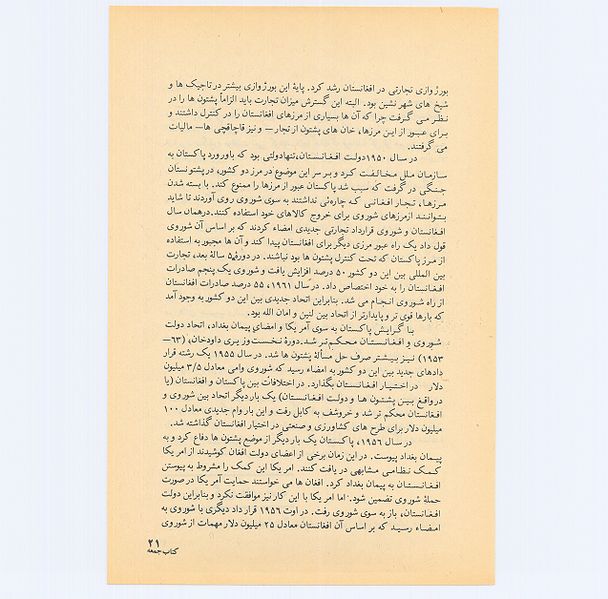 بورژوازی تجارتی در افغانستان رشد کرد. پایهٔ این بورژوازی بیشتر در تاجیک ها و
شیخ های شهر نشین بود. البته این گسترش میزان تجارت باید الزاماً پشتون ها را در
نظر می گرفت چرا که آن ها بسیاری از مرزهای افغانستان را در کنترل داشتند و
برای عبور از این مرزها، خان های پشتون از تجار — و نیز قاچاقچی ها— مالیات
می گرفتند.
در سال ۱۹۵۰ دولت افغانستان، تنها دولتی بود که با ورود پاکستان به
سازمان ملل مخالفت کرد و بر سر این موضوع در مرز دو کشور، در پشتونستان
جنگی در گرفت که سبب شد پاکستان عبور از مرزها را ممنوع کند. با بسته شدن
مرزها، تجار افغانی که چاره‌ئی نداشتند به سوی شوروی روی آوردند تا شاید
بتوانند از مرزهای شوروی برای خروج کالاهای خود استفاده کنند. در همان سال
افغانستان و شوروی قرارداد تجارتی جدیدی امضاء کردند که بر اساس آن شوروی
قول داد یک راه عبور مرزی دیگر برای افغانستان پیدا کند و آن ها مجبور به استفاده
از مرز پاکستان که تحت کنترل پشتون ها بود نباشند. در دورهٔ ۵ سالهٔ بعد، تجارت
بین المللی بین این دو کشور ۵۰ درصد افزایش یافت و شوروی یک پنجم صادرات
افغانستان را به خود اختصاص داد. در سال ۱۹۶۱، ۵۵ درصد صادرات افغانستان
از راه شوروی انجام می شد. بنابراین اتحاد جدیدی بین این دو کشور به وجود آمد
که بارها قوی تر و پایدارتر از اتحاد بین لنین و امان الله بود.
با گرایش پاکستان به سوی آمریکا و امضای پیمان بغداد، اتحاد دولت
شوروی و افغانستان محکم تر شد. دورهٔ نخست وزیری داودخان، (۶۳—
۱۹۵۳) نیز بیشتر صرف حل مسألهٔ پشتون ها شد. در سال ۱۹۵۵ یک رشته قرار
دادهای جدید بین این دو کشور به امضاء رسید که شوروی وامی معادل ۳/۵ میلیون
دلار در اختیار افغانستان بگذارد. در اختلافات بین پاکستان و افغانستان (یا
در واقع بین پشتون ها و دولت افغانستان) یک بار دیگر اتحاد بین شوروی و
افغانستان محکم تر شد و خروشف به کابل رفت و این بار وام جدیدی معادل ۱۰۰
میلیون دلار برای طرح های کشاورزی و صنعتی در اختیار افغانستان گذاشته شد.
در سال ۱۹۵۶، پاکستان یک بار دیگر از موضع پشتون ها دفاع کرد و به
پیمان بغداد پیوست. در این زمان برخی از اعضای دولت افغان کوشیدند از امریکا
کمک نظامی مشابهی دریافت کنند. امریکا این کمک را مشروط به پیوستن
افغانستان به پیمان بغداد کرد. افغان ها می خواستند حمایت آمریکا در صورت
حملهٔ شوروی تضمین شود. اما امریکا با این کار نیز موافقت نکرد و بنابراین دولت
افغانستان، باز به سوی شوروی رفت. در اوت ۱۹۵۶ قرار داد دیگری با شوروی به
امضاء رسید که بر اساس آن افغانستان معادل ۲۵ میلیون دلار مهمات از شوروی
۲۱
کتاب جمعه